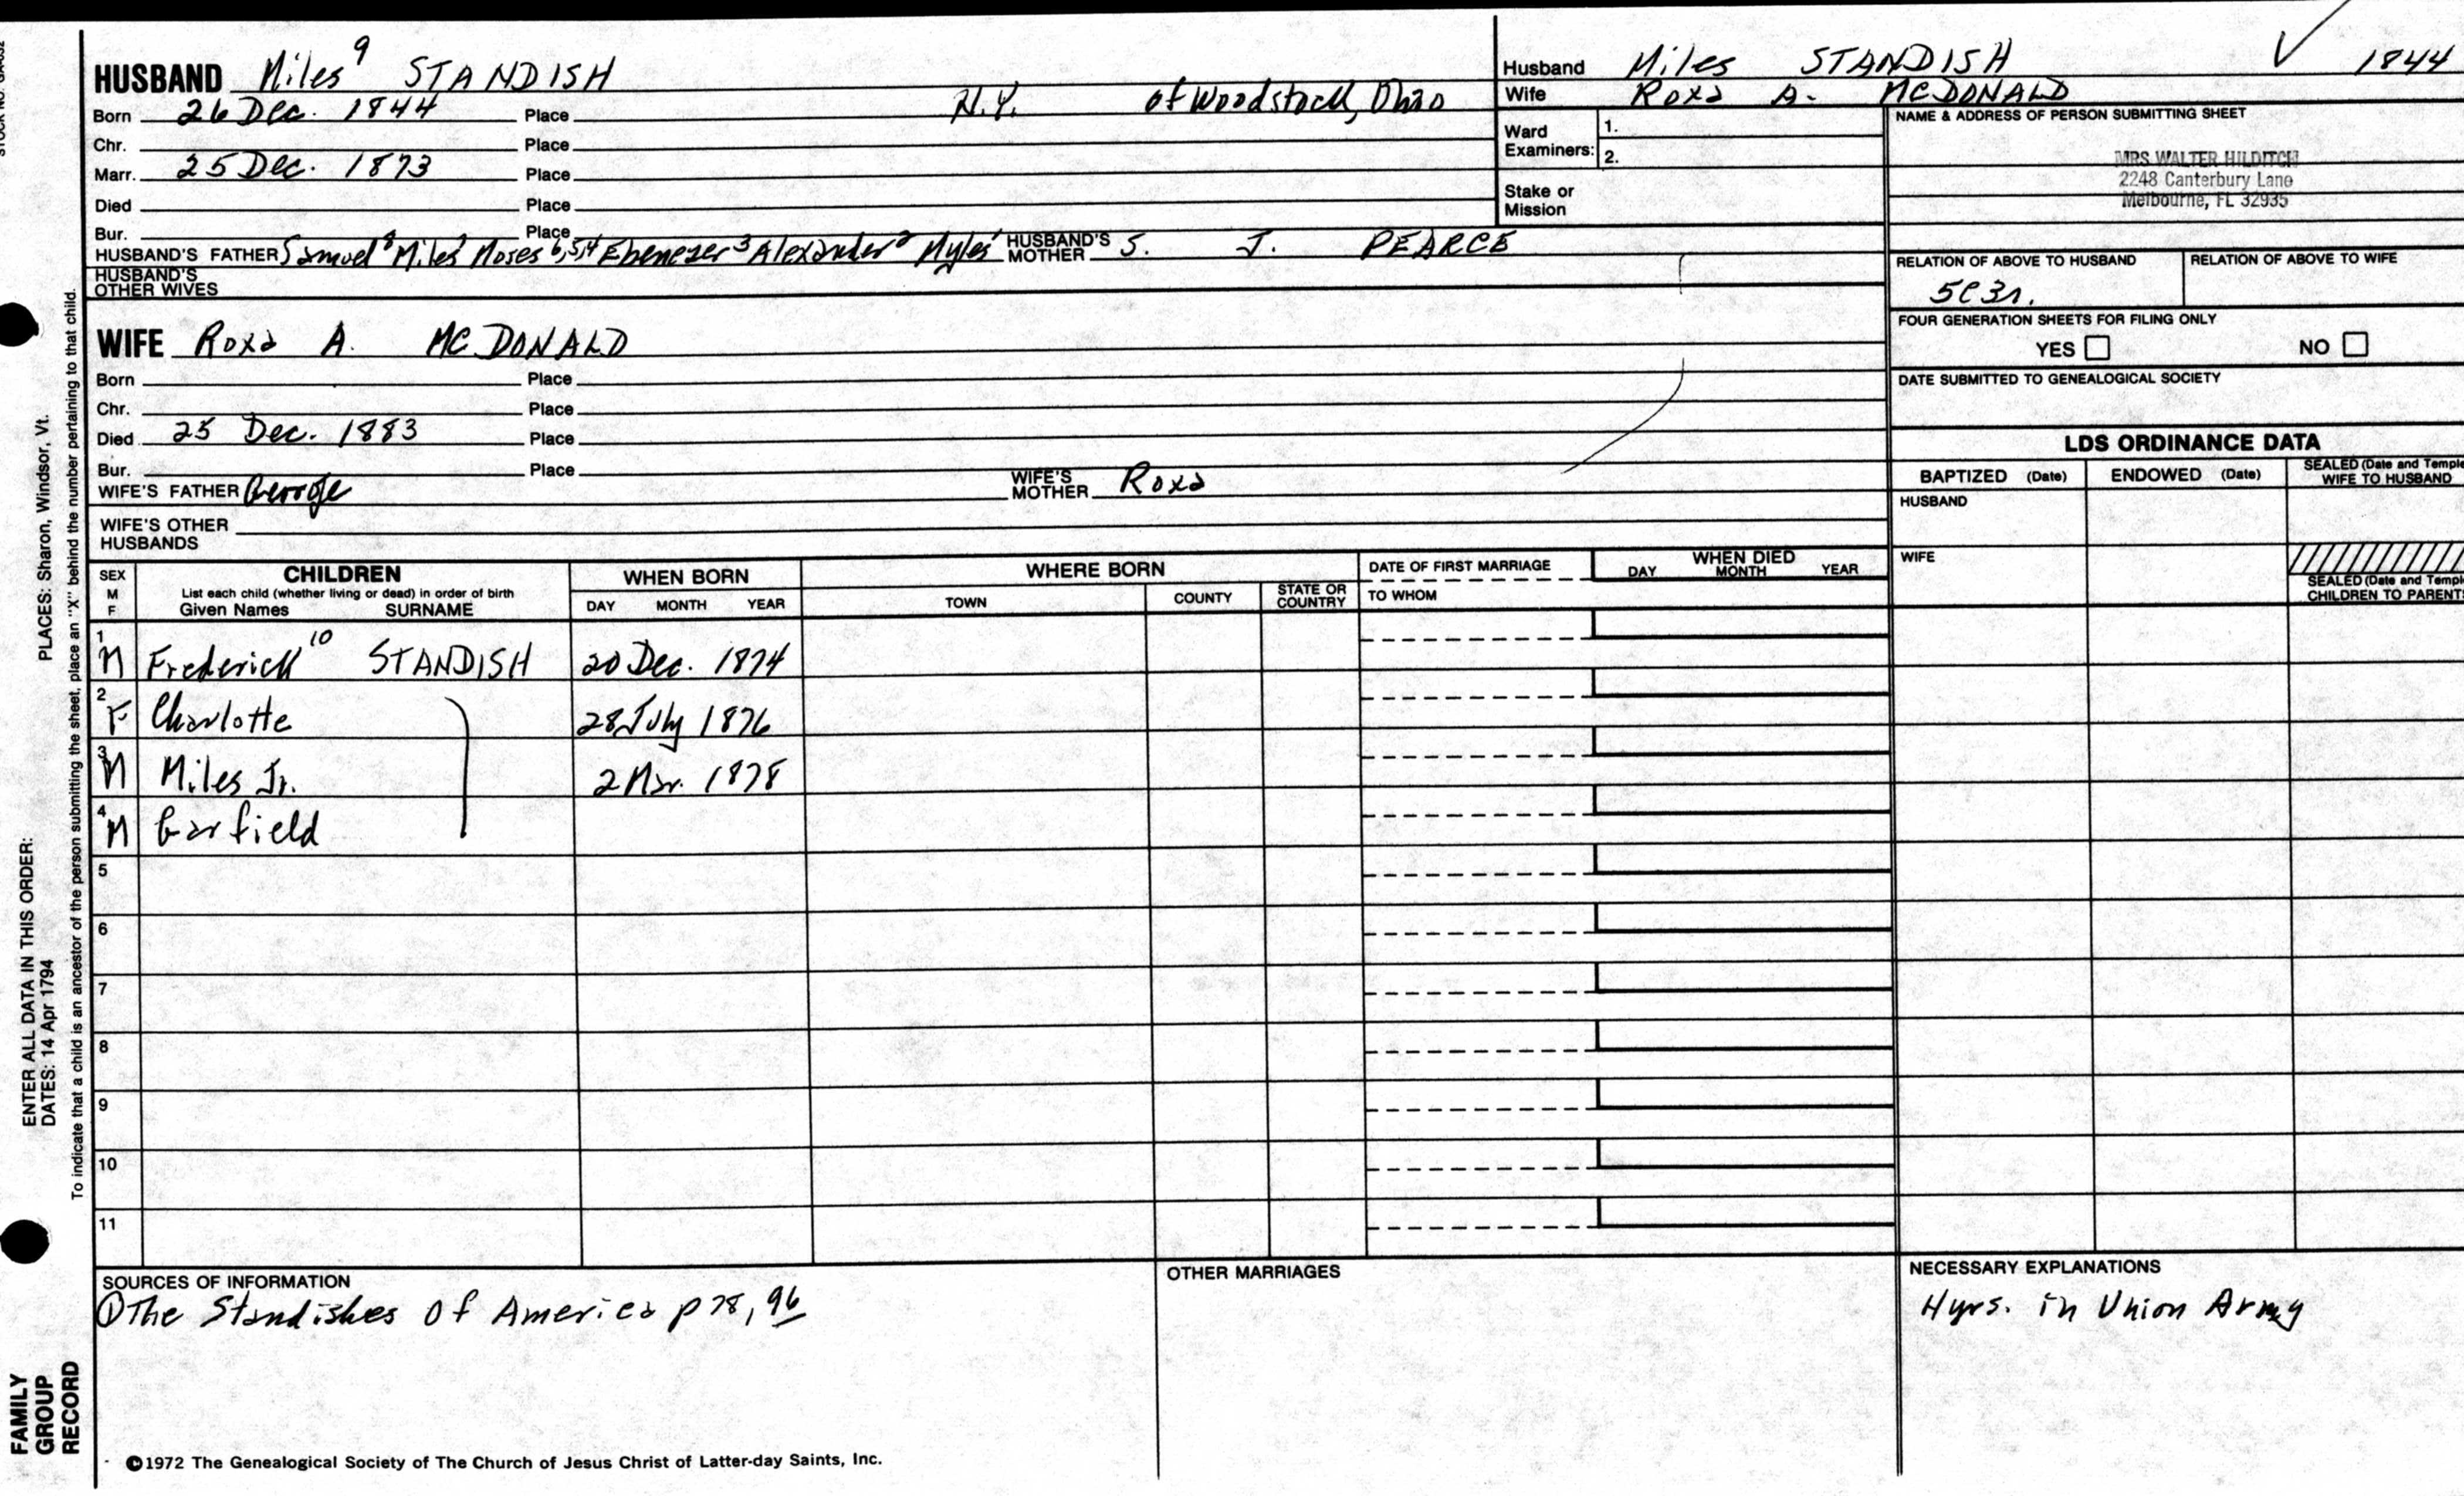 HUSBAND Miles⁹ STANDISH
Born 26 Dec. 1844 Place N.Y. of Woodstock, Ohio
Chr. Place
Marr. 25 Dec. 1873 Place
Died Place
Bur. Place
HUSBAND'S FATHER Samuel⁸ Miles⁷ Moses⁶,⁵,⁴ Ebenezer³ Alexander² Myles¹ HUSBAND'S MOTHER S. J. PEARCE
HUSBAND'S OTHER WIVES
Husband Miles STANDISH ✓ 1844
Wife Roxa A. MCDONALD
Ward Examiners: 1.
2.
Stake or Mission
NAME & ADDRESS OF PERSON SUBMITTING SHEET
MRS WALTER HILDITCH
2248 Canterbury Lane
Melbourne, FL 32935
RELATION OF ABOVE TO HUSBAND RELATION OF ABOVE TO WIFE
5C3r.
FOUR GENERATION SHEETS FOR FILING ONLY
YES NO
DATE SUBMITTED TO GENEALOGICAL SOCIETY
WIFE Roxa A. MCDONALD
Born Place
Chr. Place
Died 25 Dec. 1883 Place
Bur. Place
WIFE'S FATHER George WIFE'S MOTHER Roxa
WIFE'S OTHER HUSBANDS
LDS ORDINANCE DATA
BAPTIZED (Date) ENDOWED (Date) SEALED (Date and Temple WIFE TO HUSBAND
HUSBAND
WIFE
SEALED (Date and Templ
CHILDREN TO PARENTS
SEX M F
CHILDREN
List each child (whether living or dead) in order of birth
Given Names SURNAME
WHEN BORN
DAY MONTH YEAR
WHERE BORN
TOWN COUNTY STATE OR COUNTRY
DATE OF FIRST MARRIAGE
TO WHOM
WHEN DIED
DAY MONTH YEAR
1 M Frederick¹⁰ STANDISH 20 Dec. 1874
2 F Charlotte 28 July 1876
3 M Miles Jr. 2 Mar. 1878
4 M Garfield
5
6
7
8
9
10
11
SOURCES OF INFORMATION
①The Standishes of America p 78, 96
OTHER MARRIAGES
NECESSARY EXPLANATIONS
4yrs. in Union Army
©1972 The Genealogical Society of The Church of Jesus Christ of Latter-day Saints, Inc.
FAMILY GROUP RECORD
ENTER ALL DATA IN THIS ORDER:
DATES: 14 Apr 1794
PLACES: Sharon, Windsor, Vt.
To indicate that a child is an ancestor of the person submitting the sheet, place an "X" behind the number pertaining to that child.